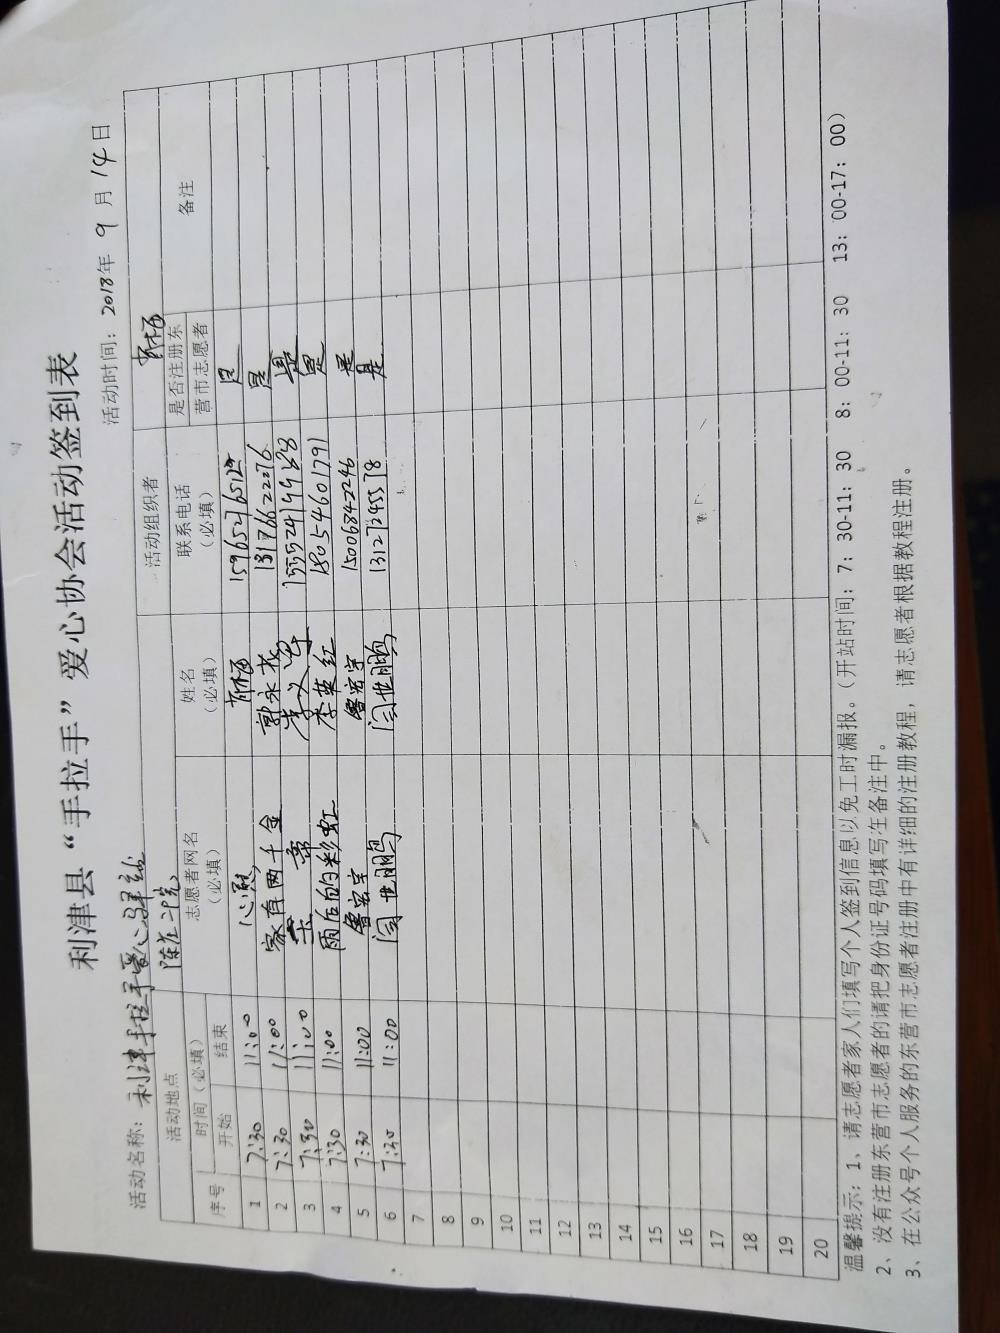 利津县“手拉手”爱心协会活动签到表
活动名称：利津手拉手爱心驿站 活动时间：2018年 9 月 14 日
活动地点 活动组织者
序号 时间（必填） 志愿者网名（必填） 姓名（必填） 联系电话（必填） 是否注册东营市志愿者 备注
开始 结束
1 7:30 11:00
2 7:30 11:00 家有两千金 郭永 13176622276 是
3 7:30 11:00 是
4 7:30 11:00 雨后的彩虹 李英红 18054601791 是
5 7:30 11:00 15006842246 是
6 7:30 11:00 闫世鹏 闫世鹏 是
7
8
9
10
11
12
13
14
15
16
17
18
19
20
温馨提示：1、请志愿者家人们填写个人签到信息以免工时漏报。（开站时间：7：30-11：30 8：00-11：30 13：00-17：00）
2、没有注册东营市志愿者的请把身份证号码填写在备注中。
3、在公众号个人服务的东营市志愿者注册中有详细的注册教程，请志愿者根据教程注册。